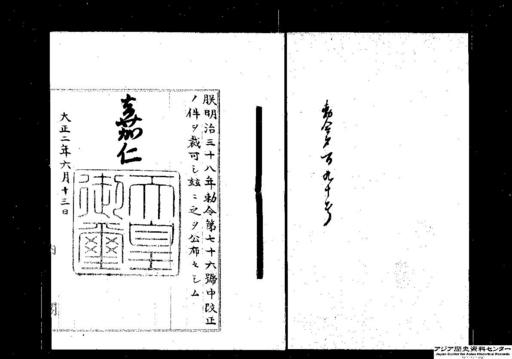 勅令第百九十号
朕明治三十八年勅令第七十六號中改正
ノ件ヲ裁可シ茲ニ之ヲ公布セシム
嘉仁
天皇
御璽
大正二年六月十三日
内閣
アジア歴史資料センター
Japan Center for Asian Historical Records